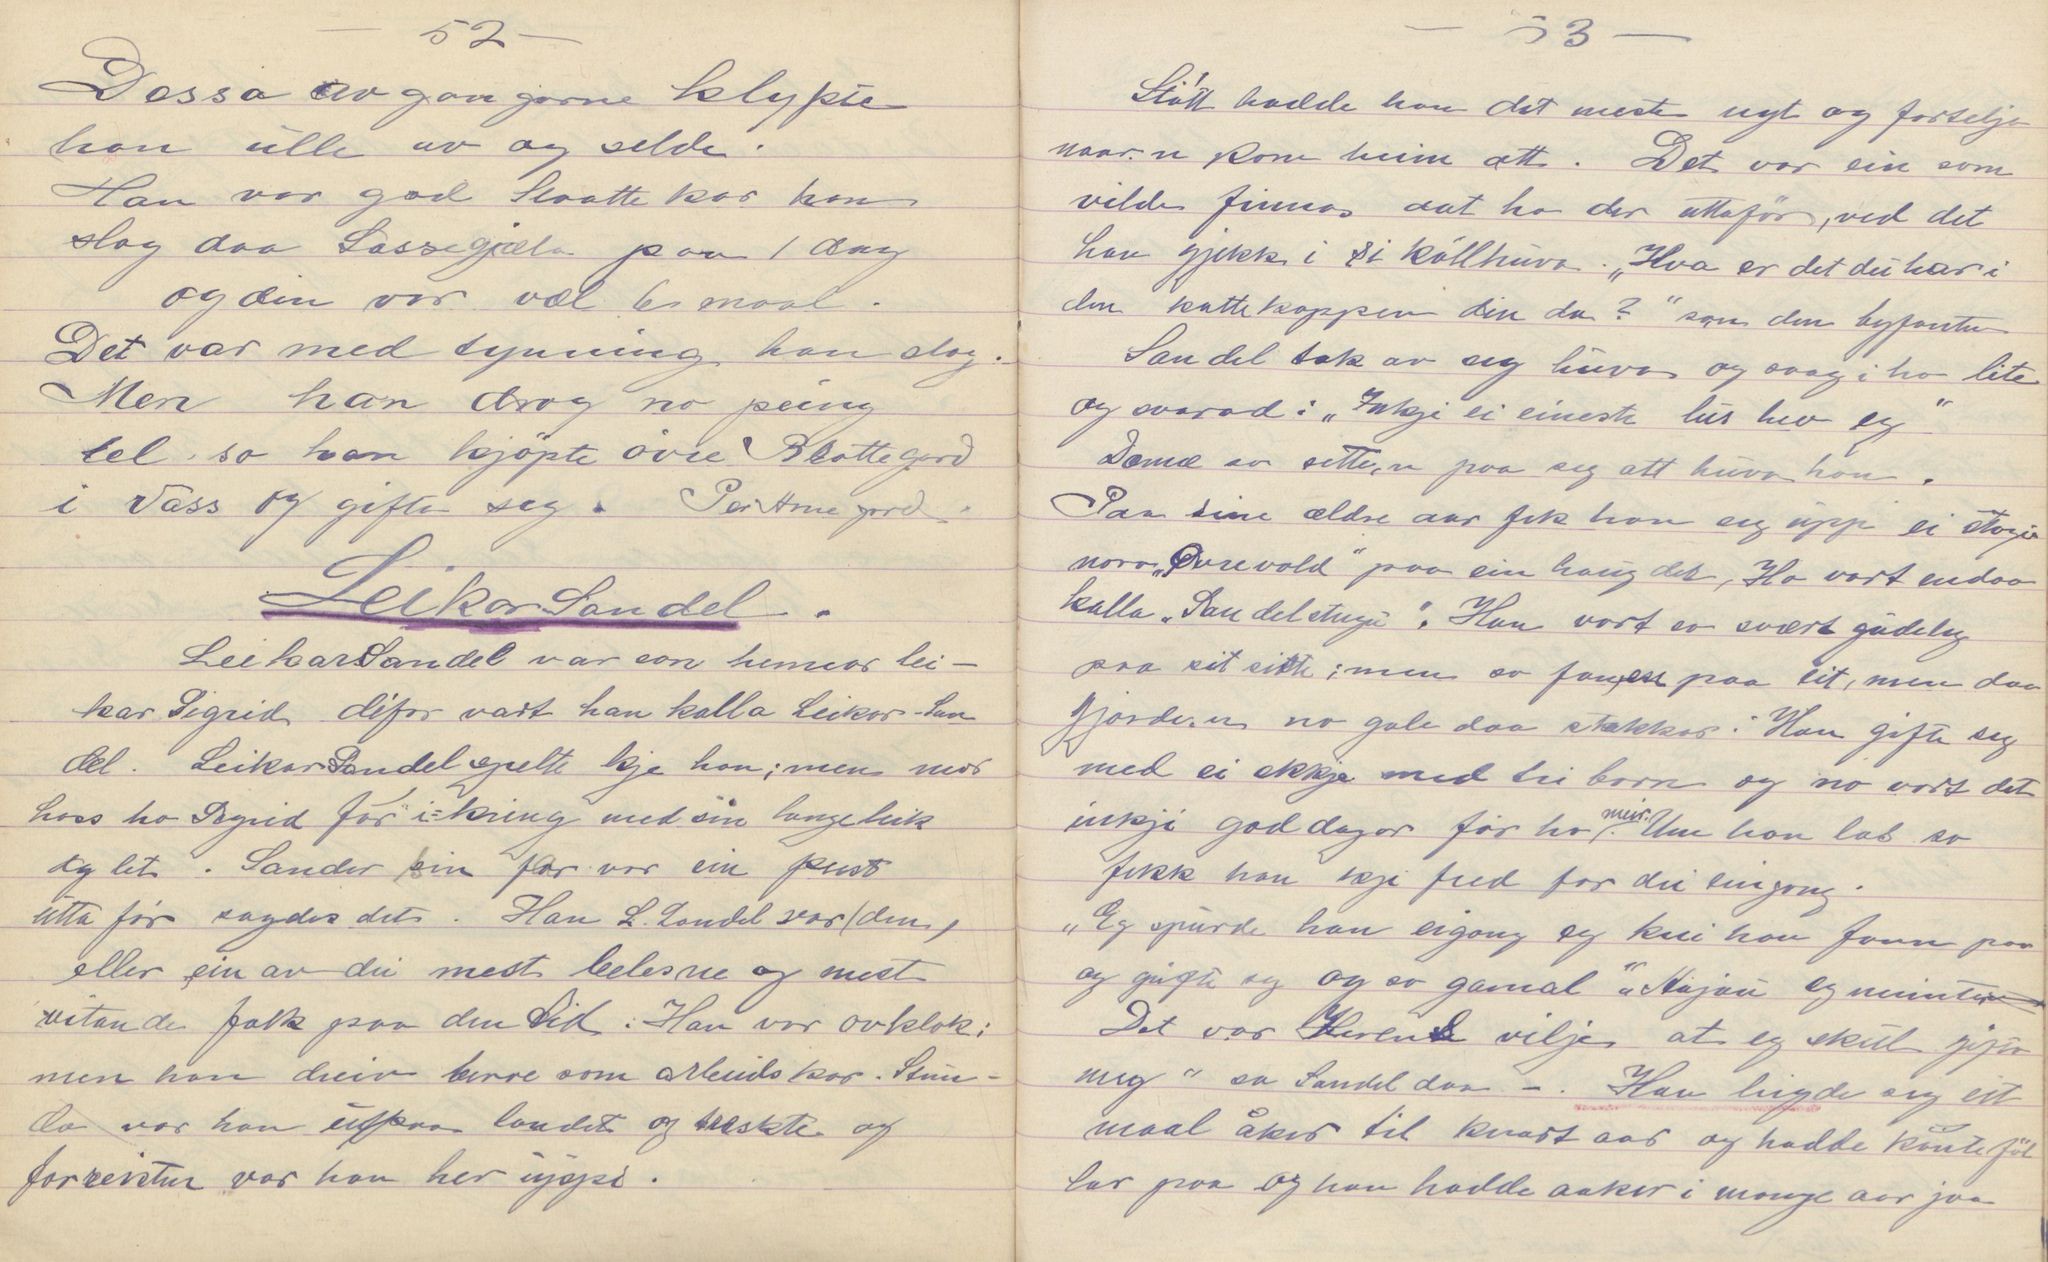 — 52 —
Dessa avgangarne klypte
han ulle av og selde.
Han var god Slaatte kar han
slog daa Lassegjæla paa 1 dag
og den var væl 6 maal.
Det var med tynning han slog.
Men han drog no peing
tel so han kjöpte övre Blattegard
i Vass og gifta seg. Per Arnegard.
Leikar Sandel.
Leikar Sandel var son hennar lei-
kar Sigrid difor vart han kalla Leikar-San
del. Leikar Sandel spelte kje han; men mor
hass ho Sigrid för i-kring med sin langeleik
og let. Sander sin far var ein prest
utta för sagdes det. Han L. Sandel var (den,
eller ein av dei mest belesne og mest
vitande folk paa den tid. Han var ovklok;
men han dreiv berre som arbeidskar. Stun-
da var han utpaa landet og treskte og
forresten var han her uppi.
— 53 —
Stött hadde han det meste nyt og fortelja
naar.n kom heim att. Det var ein som
vilde finnas aat ho der uttaför, ved det
han gjekk i si kollhuva. „Hva er det du har i
den kattekoppen din da?" sa den byfanten
Sandel tok av seg huva og saag i ho lite
og svarad: „Inkji ei eineste lus hev eg"
Dermæ so sette.n paa seg att huva han.
Paa sine ældre aar fek han seg upp ei stogu
nora „Övrevold" paa ein haug der, Ho vart endaa
kalla „Sandelstugu". Han vart so svært gudeleg
paa sit siste; men so fann.en paa eit, men daa
gjorde.n no gale daa stakkar. Han gifte seg
med ei ekkje med tri born og no vart det
inkji goddagar for ho meir. Um han las so
fekk han kji fred for dei eingong.
„Eg spurde han eigong eg kvi han fann paa
og gifte seg og so gamal" „Nujau eg meinte
Det var Herrens vilje at eg skul gifta
meg" sa Sandel daa —. Han leigde seg eit
maal åker til kvart aar og hadde könte föl
lar paa og han hadde aaker i mange aar jaa